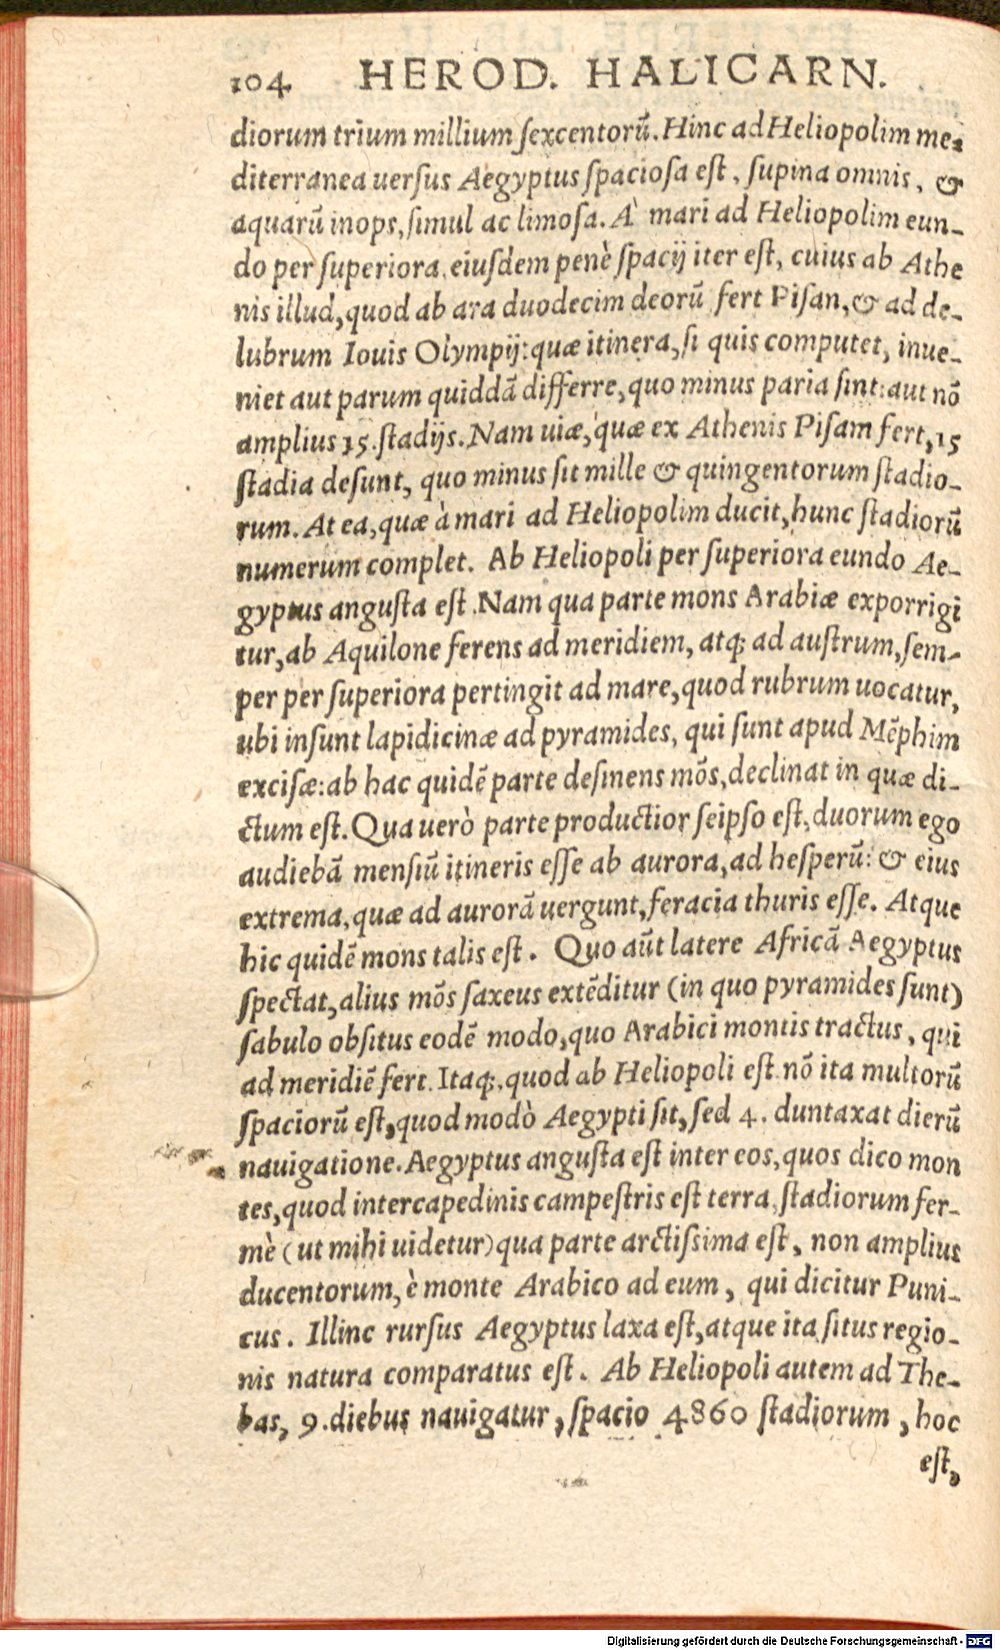 104 HEROD. HALICARN.
diorum trium millium ſexcentorũ. Hinc ad Heliopolim me-
diterranea uerſus Aegyptus ſpacioſa eſt, ſupina omnis, &
aquarũ inops, ſimul ac limoſa. À mari ad Heliopolim eun-
do per ſuperiora, eiuſdem penè ſpacij iter eſt, cuius ab Athe
nis illud, quod ab ara duodecim deorũ fert Piſan, & ad de-
lubrum Iouis Olympij: quæ itinera, ſi quis computet, inue-
niet aut parum quiddã differre, quo minus paria ſint: aut nõ
amplius 15. ſtadijs. Nam uiæ, quæ ex Athenis Piſam fert, 15
ſtadia deſunt, quo minus ſit mille & quingentorum ſtadio-
rum. At ea, quæ à mari ad Heliopolim ducit, hunc ſtadiorũ
numerum complet. Ab Heliopoli per ſuperiora eundo Ae-
gyptus anguſta eſt. Nam qua parte mons Arabiæ exporrigi
tur, ab Aquilone ferens ad meridiem, atq; ad auſtrum, ſem-
per per ſuperiora pertingit ad mare, quod rubrum uocatur,
ubi inſunt lapidicinæ ad pyramides, qui ſunt apud Mẽphim
exciſæ: ab hac quidẽ parte deſinens mõs, declinat in quæ di-
ctum eſt. Qua uerò parte productior ſeipſo eſt, duorum ego
audiebã menſiũ itineris eſſe ab aurora, ad heſperũ: & eius
extrema, quæ ad aurorã uergunt, feracia thuris eſſe. Atque
hic quidẽ mons talis eſt. Quo aũt latere Africã Aegyptus
ſpectat, alius mõs ſaxeus extẽditur (in quo pyramides ſunt)
ſabulo obſitus eodẽ modo, quo Arabici montis tractus, qui
ad meridiẽ fert. Itaq;, quod ab Heliopoli eſt nõ ita multorũ
ſpaciorũ eſt, quod modò Aegypti ſit, ſed 4. duntaxat dierũ
nauigatione. Aegyptus anguſta eſt inter eos, quos dico mon
tes, quod intercapedinis campeſtris eſt terra, ſtadiorum fer-
mè (ut mihi uidetur) qua parte arctiſsima eſt, non amplius
ducentorum, è monte Arabico ad eum, qui dicitur Puni-
cus. Illinc rurſus Aegyptus laxa eſt, atque ita ſitus regio-
nis natura comparatus eſt. Ab Heliopoli autem ad The-
bas, 9. diebus nauigatur, ſpacio 4860 ſtadiorum, hoc
eſt,
Digitalisierung gefördert durch die Deutsche Forschungsgemeinschaft - DFG